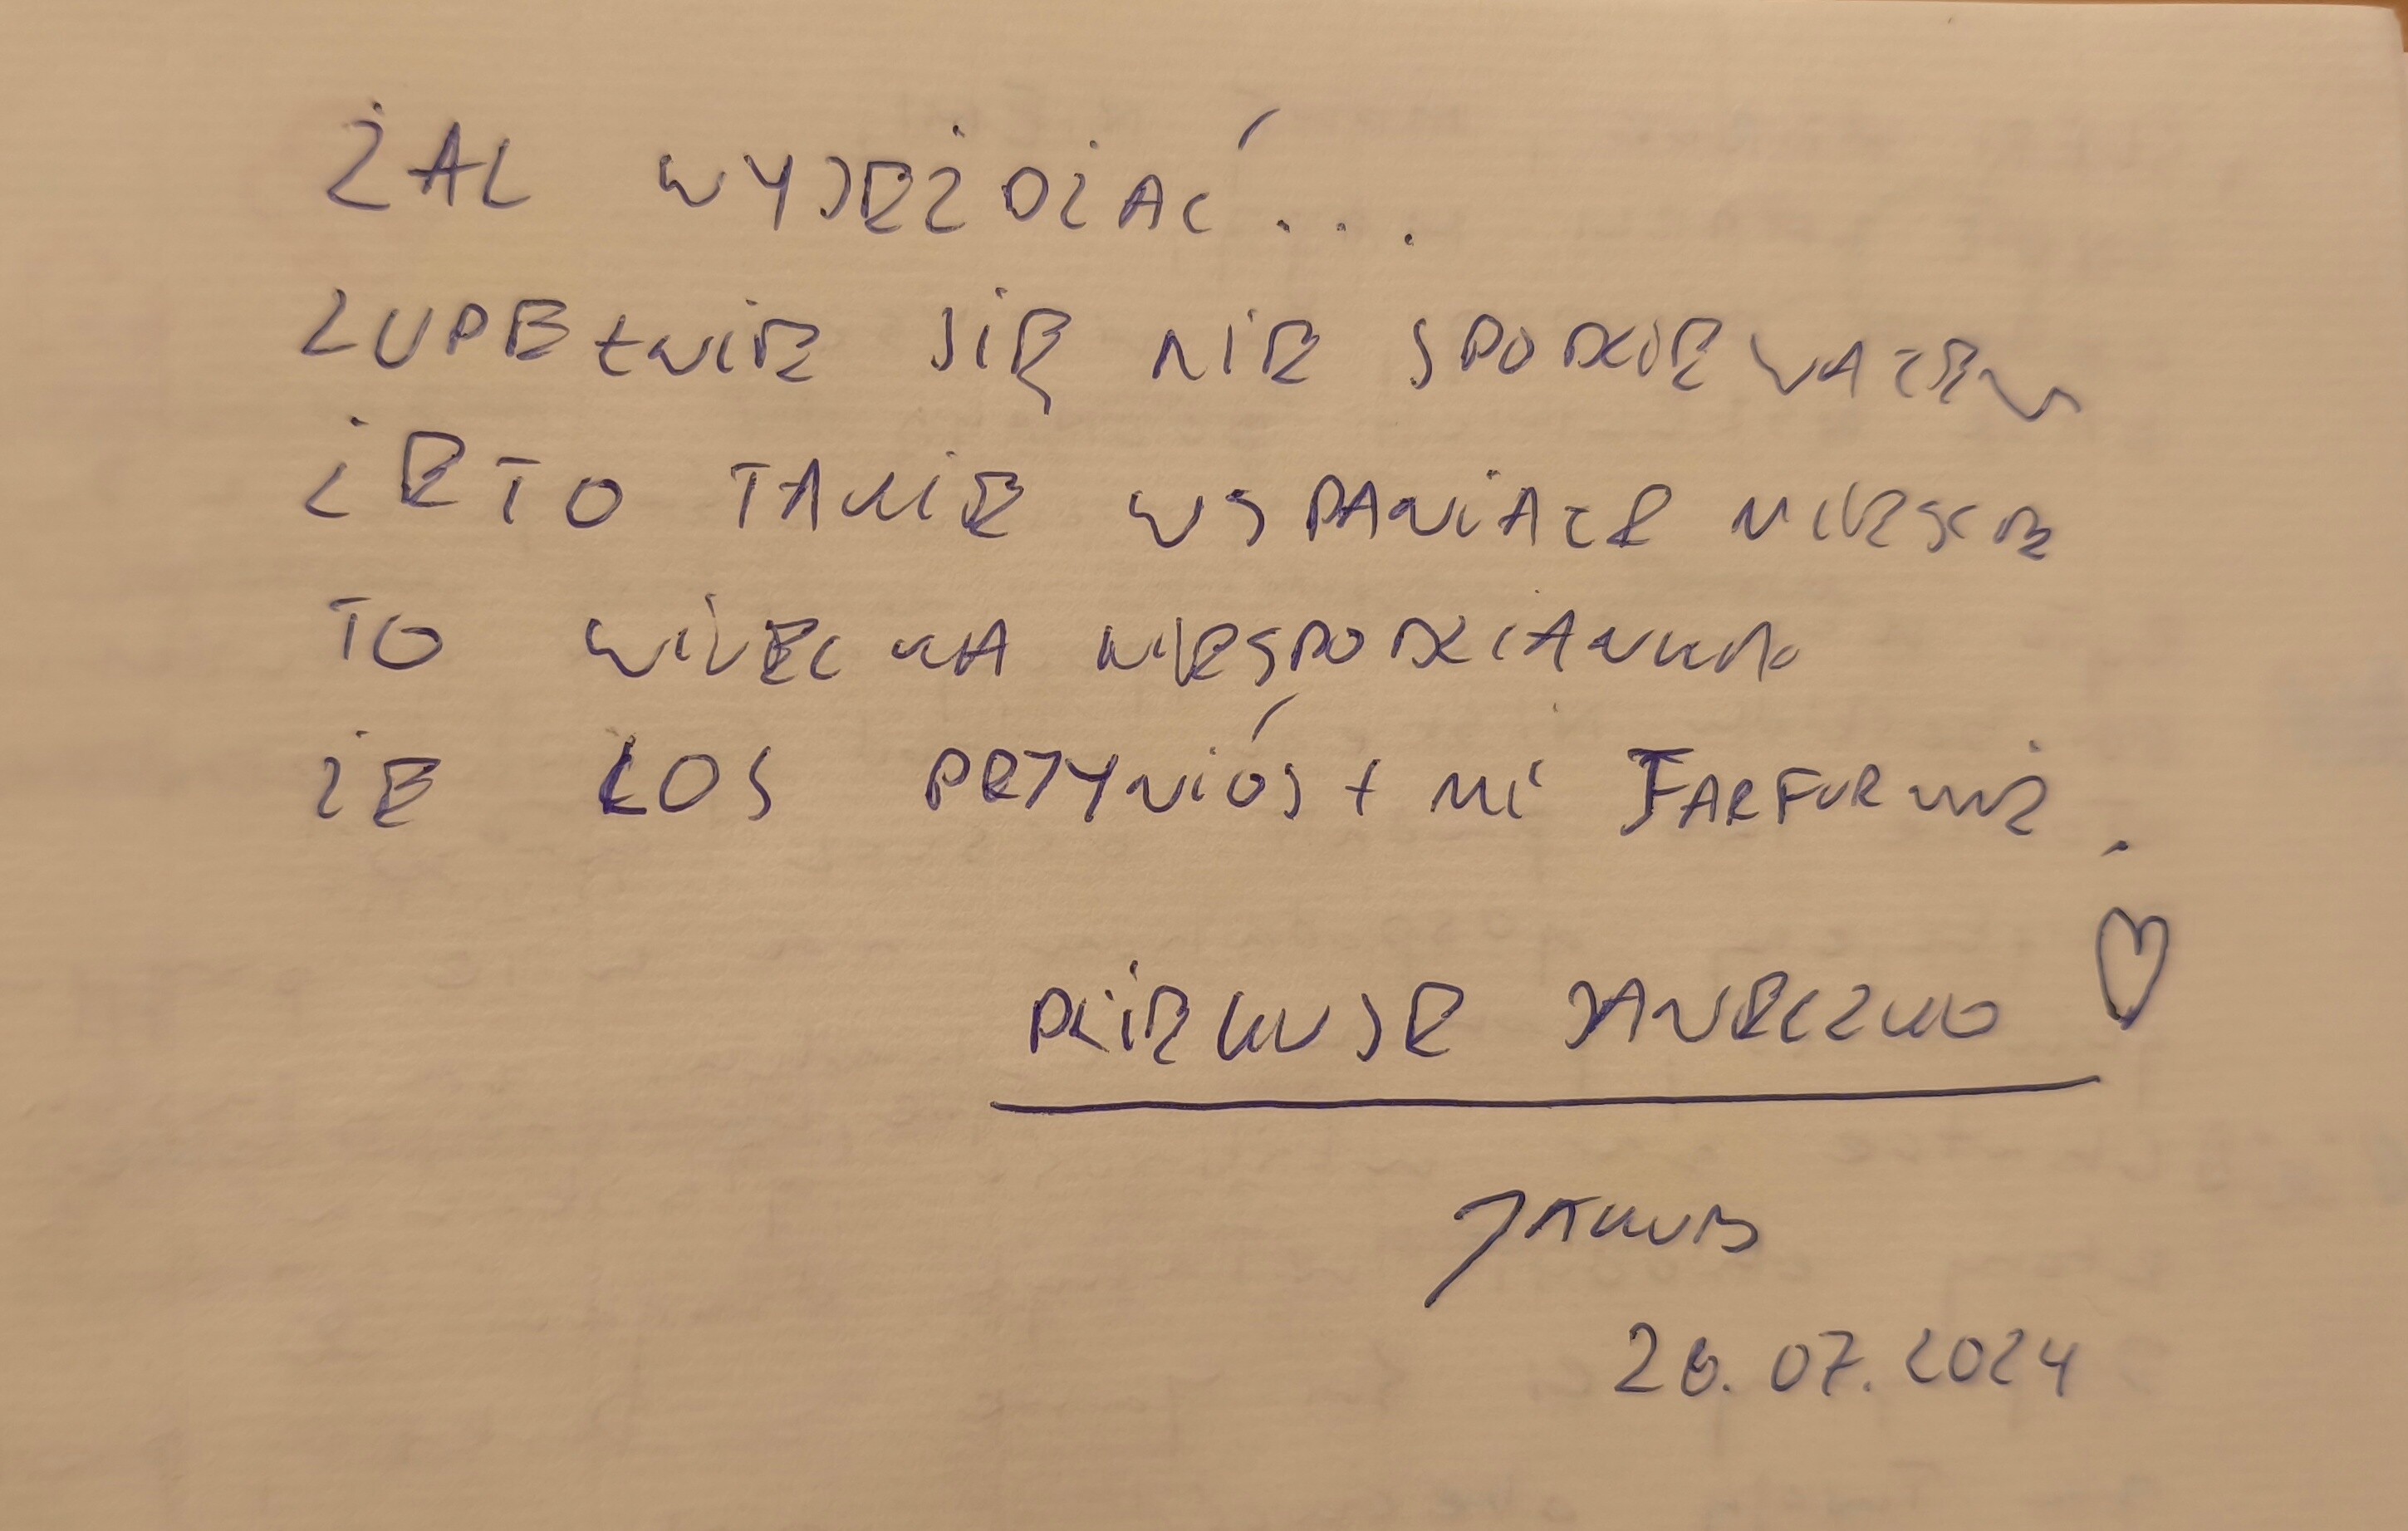 ŻAL WYJEŻDŻAĆ...
ZUPEŁNIE SIĘ NIE SPODZIEWAŁEM
ŻE TO TAKIE WSPANIAŁE MIEJSCE
TO WIELKA NIESPODZIANKA
ŻE LOS PRZYNIÓSŁ MI FARFURNIĘ.
DZIĘKUJE JANECZKO ♡
JAKUB
28.07.2024